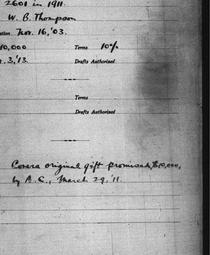 2601 in 1911.
W. B. Thompson
Nov. 16, '03.
10,000 Terms 10%
. 3, '13. Drafts Authorized
Terms
Drafts Authorized
Covers original gift promised, $10,000,
by A. C., March 29, '11.